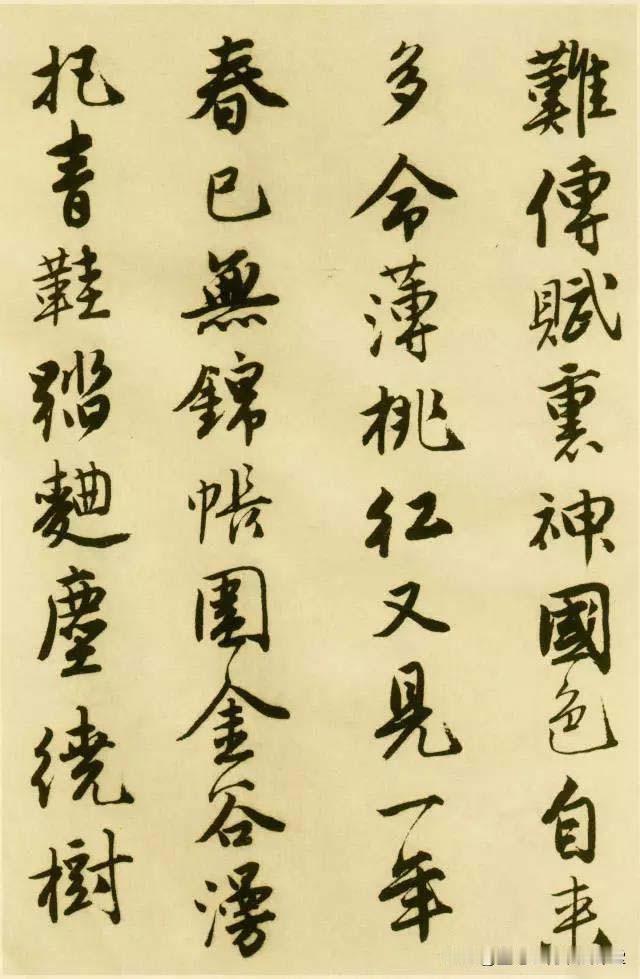 難傳賦裏神國色自來
多命薄桃紅又見一年
春已無錦帳圍金谷漫
把青鞋踏麴塵繞樹